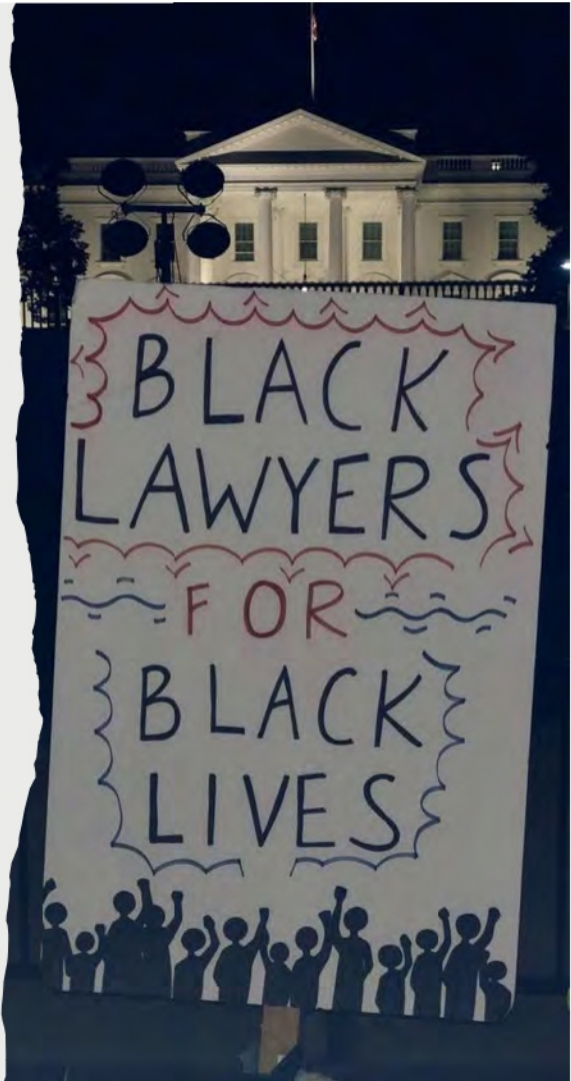 BLACK
LAWYERS
FOR
BLACK
LIVES